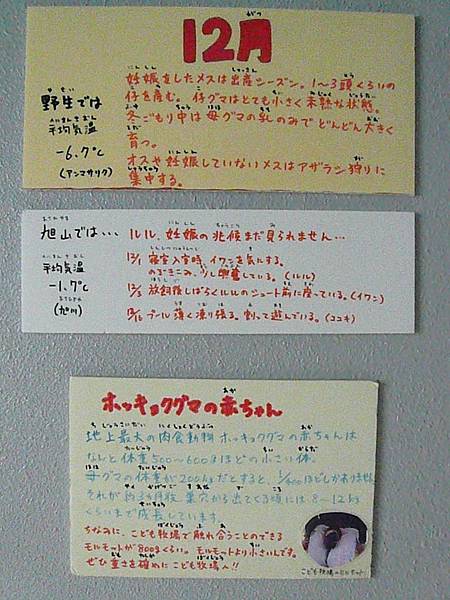 12月
野生では
平均気温
-6.7℃
(アンマサリク)
妊娠をしたメスは出産シーズン。1〜3頭くらいの
仔を産む。仔グマはとても小さく未熟な状態。
冬ごもり中は母グマの乳のみでどんどん大きく
育つ。
オスや妊娠していないメスはアザラシ狩りに
集中する。
旭山では…
平均気温
-1.7℃
(旭川)
ルル、妊娠の兆候まだ見られません…
12/1 寝室入室時、イワンを気にする。
のぞきこみ、少し興奮している。(ルル)
12/3 放飼後しばらくルルのシュート前に座っている。(イワン)
プール薄く凍り張る。割って遊んでいる。(ココキ)
ホッキョクグマの赤ちゃん
地上最大の肉食動物 ホッキョクグマの赤ちゃんは
なんと体重500〜600gほどの小さい体。
母グマの体重が200kgだとすると、1/400ほどしかありません。
それが約3ヶ月後、巣穴から出てくる頃には8〜12kg
くらいまで成長しています。
ちなみに、こども牧場で触れ合うことのできる
モルモットが800gくらい。モルモットより小さいんです。
ぜひ重さを確めにこども牧場へ!!
こども牧場のモルモット